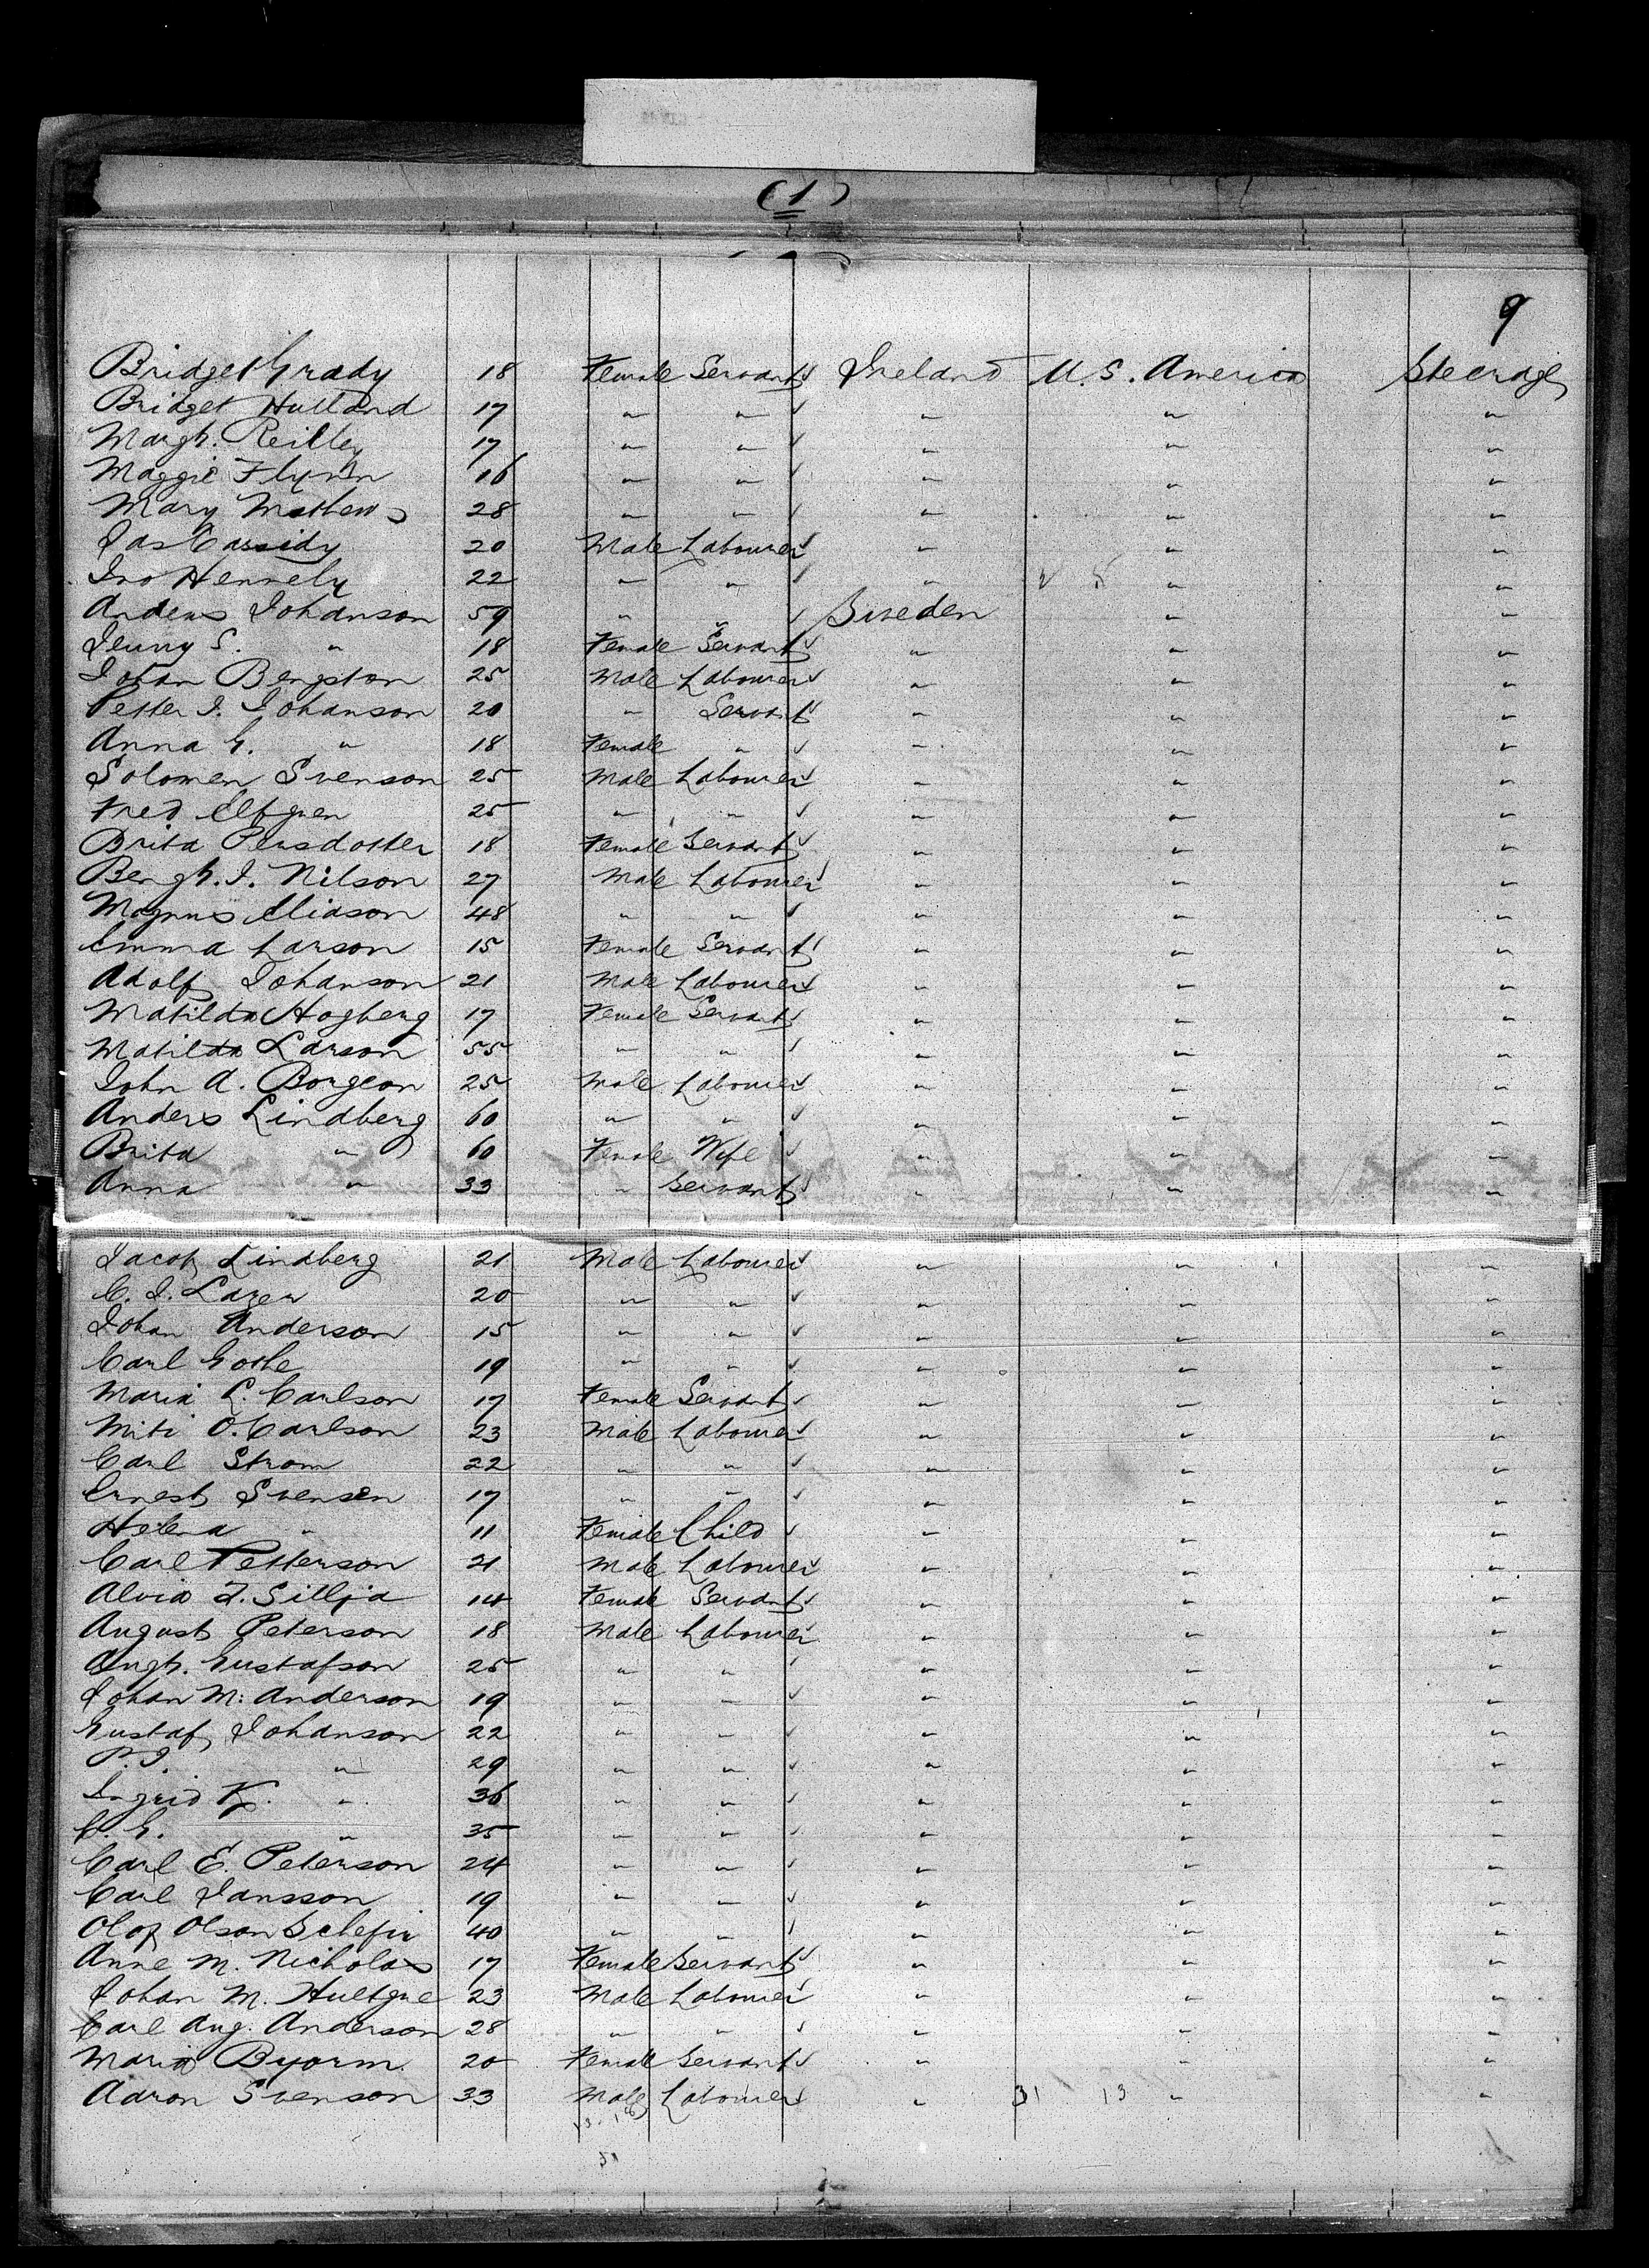 (1)
9
Bridget Grady 18 Female Servant Ireland U.S. America Steerage
Bridget Hulland 17 " " " " "
Margt. Reilley 17 " " " " "
Maggie Flynn 16 " " " " "
Mary Mathews 28 " " " " "
Jas Cassidy 20 Male Labourer " " "
Jno Hennely 22 " " " " "
Anders Johanson 59 " " Sweden " "
Jenny S. " 18 Female Servant " " "
Johan Bengston 25 Male Labourer " " "
Petter J. Johanson 20 " Servant " " "
Anna G. " 18 Female " " " "
Solomen Svenson 25 Male Labourer " " "
Fred Elfgren 25 " " " " "
Brita Persdotter 18 Female Servant " " "
Bengt. J. Nilson 27 Male Labourer " " "
Magnus Eliason 48 " " " " "
Emma Larson 15 Female Servant " " "
Adolf Johanson 21 Male Labourer " " "
Matilda Hogberg 17 Female Servant " " "
Matilda Larson 55 " " " " "
John A. Borgeon 25 Male Labourer " " "
Anders Lindberg 60 " " " " "
Brita " 60 Female Wife " " "
Anna " 33 " Servant " " "
Jacob Lindberg 21 Male Labourer " " "
C. J. Laren 20 " " " " "
Johan Anderson 15 " " " " "
Carl Gothe 19 " " " " "
Maria L. Carlson 17 Female Servant " " "
Miti O. Carlson 23 Male Labourer " " "
Carl Strom 22 " " " " "
Ernest Svensen 17 " " " " "
Helena " 11 Female Child " " "
Carl Petterson 21 Male Labourer " " "
Alvia T. Sillja 14 Female Servant " " "
August Peterson 18 Male Labourer " " "
Augt. Gustafson 25 " " " " "
Johan M. Anderson 19 " " " " "
Gustaf Johanson 22 " " " " "
P. J. " 29 " " " " "
Ingrid K. " 36 " " " " "
C. G. " 35 " " " " "
Carl E. Peterson 24 " " " " "
Carl Jansson 19 " " " " "
Olof Olson 40 " " " " "
Anne M. Nicholas 17 Female Servant " " "
Johan M. Hultgre 23 Male Labourer " " "
Carl Aug. Anderson 28 " " " " "
Maria Byorm. 20 Female Servant " " "
Aaron Svenson 33 Male Labourer " 31 13 " "